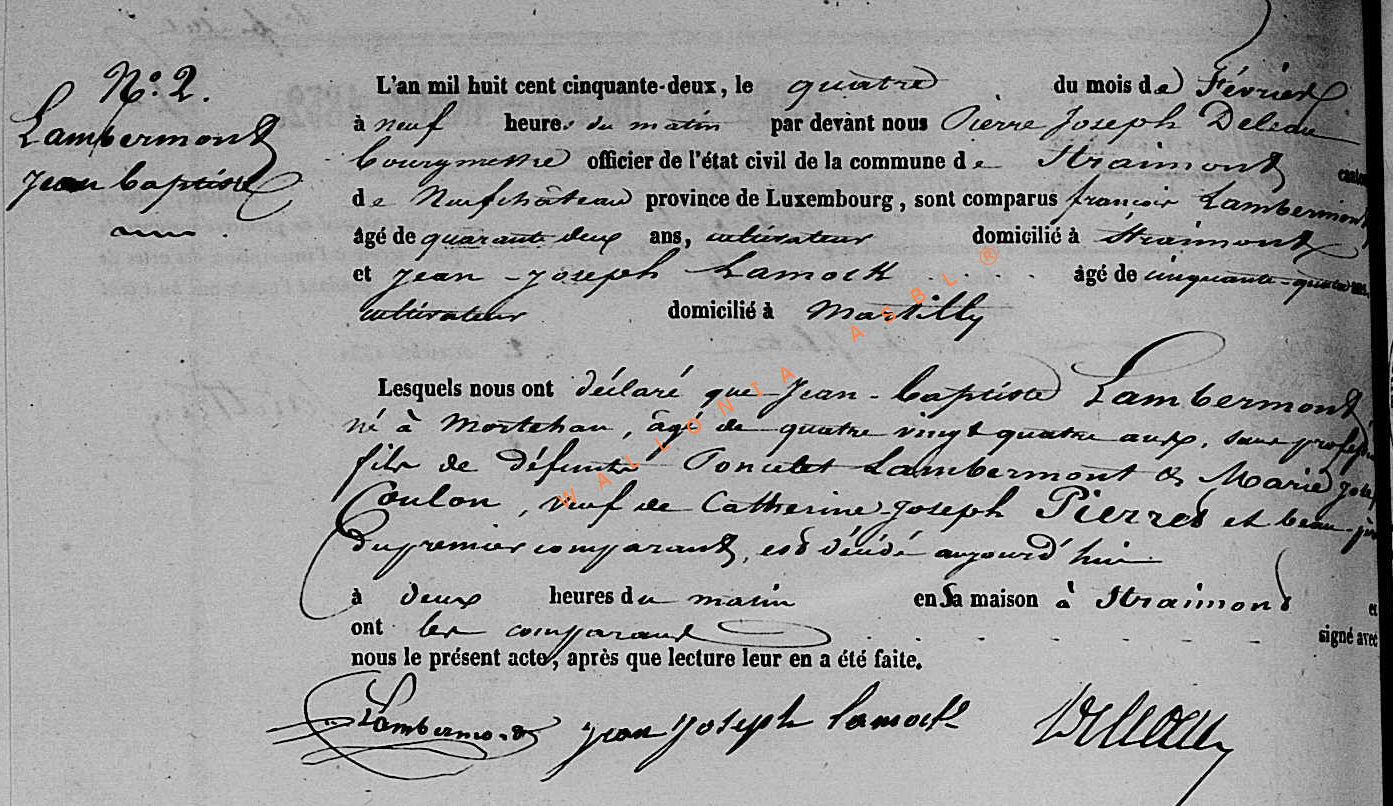 N.o 2.
Lambermont
Jean baptiste
L'an mil huit cent cinquante-deux, le quatre du mois de Février
à neuf heures du matin par devant nous Pierre Joseph Deleau
bourgmestre officier de l'état civil de la commune de Straimont canton
de Neufchâteau province de Luxembourg, sont comparus françois Lambermont
âgé de quarante deux ans, cultivateur domicilié à Straimont
et Jean-Joseph Lamock âgé de cinquante-quatre ans,
cultivateur domicilié à Martilly
Lesquels nous ont déclaré que Jean-baptiste Lambermont
né à Mortehan, âgé de quatre vingt quatre ans, sans profession
fils de défunts Poncelet Lambermont & Marie Josep
Coulon, veuf de Catherine-Joseph Pierret et beau-père
du premier comparant, est décédé aujourd'hui
à deux heures du matin en sa maison à Straimont et
ont les comparant signé avec
nous le présent acte, après que lecture leur en a été faite.
Lambermont Jean Joseph Lamock Deleau
WALLONIA ASBL ®